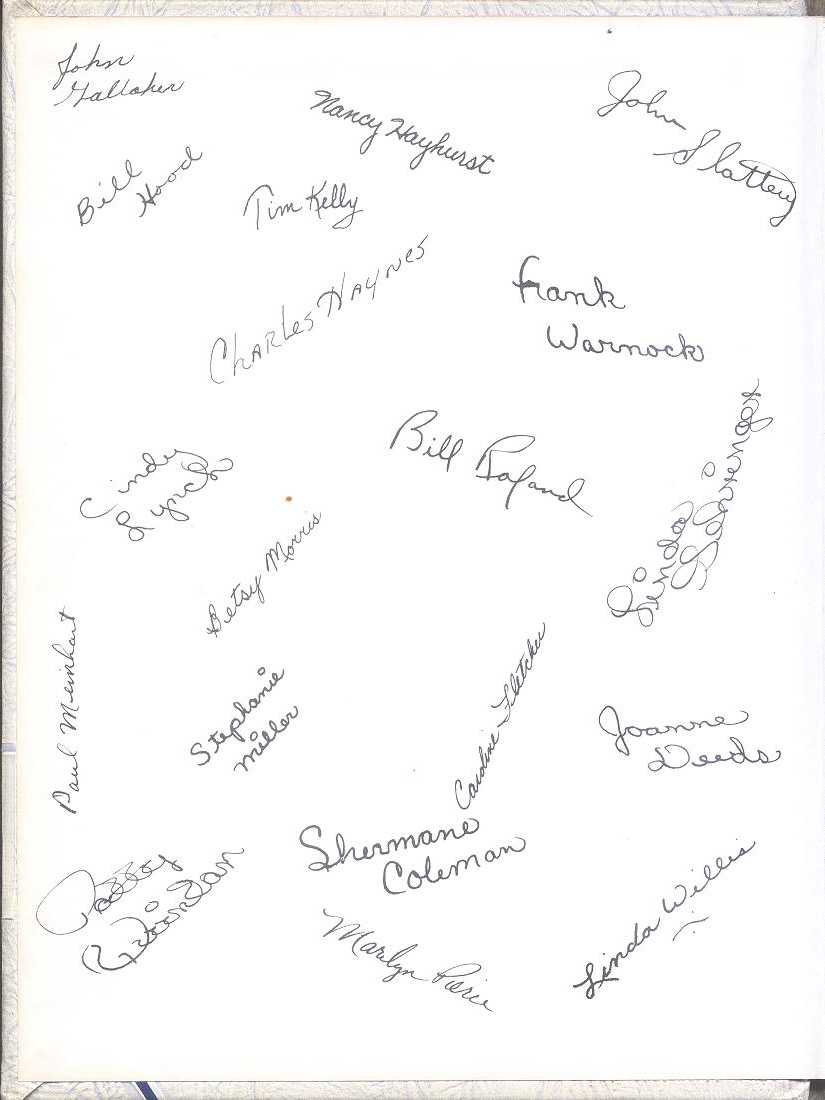 John
Gallaher
Nancy Hayhurst
John
Slattery
Bill
Hood
Tim Kelly
Charles Haynes
Frank
Warnock
Bill
Cindy
Lynch
Linda
Betsy Morris
Paul Meinhart
Stephanie
Miller
Caroline Fletcher
Joanne
Deeds
Shermane
Coleman
Patty
Marilyn Pierce
Linda Willis